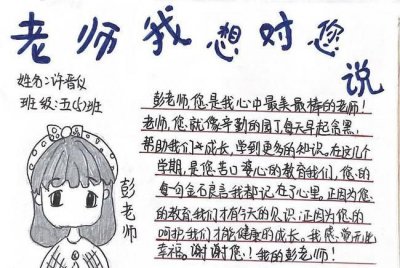 老师我想对您
说
姓名:许晋仪
班级:五(5)班
彭老师
彭老师,您是我心中最美最棒的老师!
老师,您就像辛勤的园丁每天早起贪黑,
帮助我们成长,学到更多的知识。在这几个
学期,是您苦口婆心的教育我们,您的
每一句金玉良言我都记在了心里。正因为您
的教育我们才有今天的见识;正因为您的
呵护我们才能健康的成长。我感觉无比
幸福。谢谢您!我的彭老师!